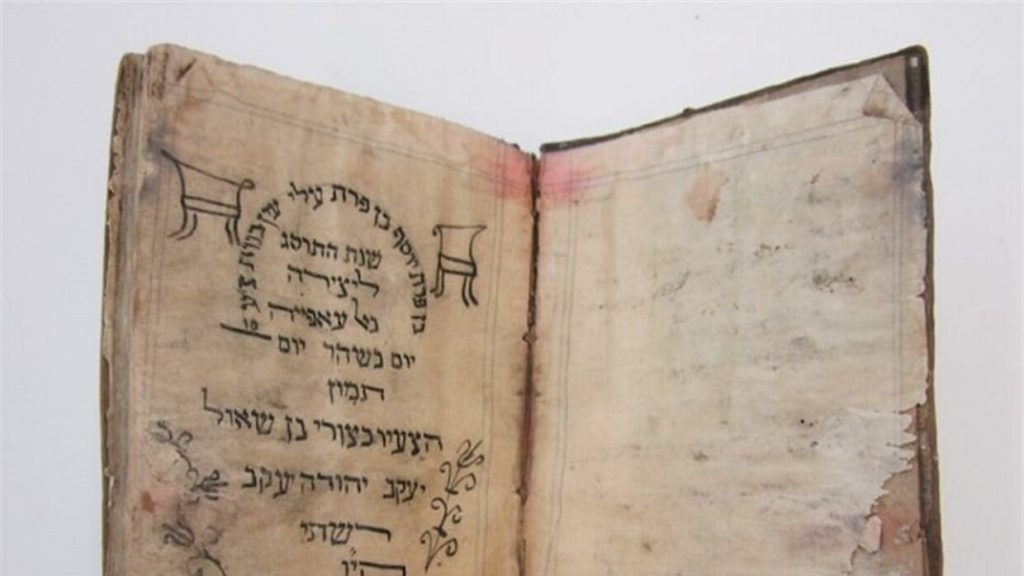 בן פרת יוסף בן פרת עלי עין בנות
שנת התרסג
ליצירה
עאפייה
יום בשהר יום
תמוז
הצעיר בן שאול
יעקב יהודה יעקב
רשתי